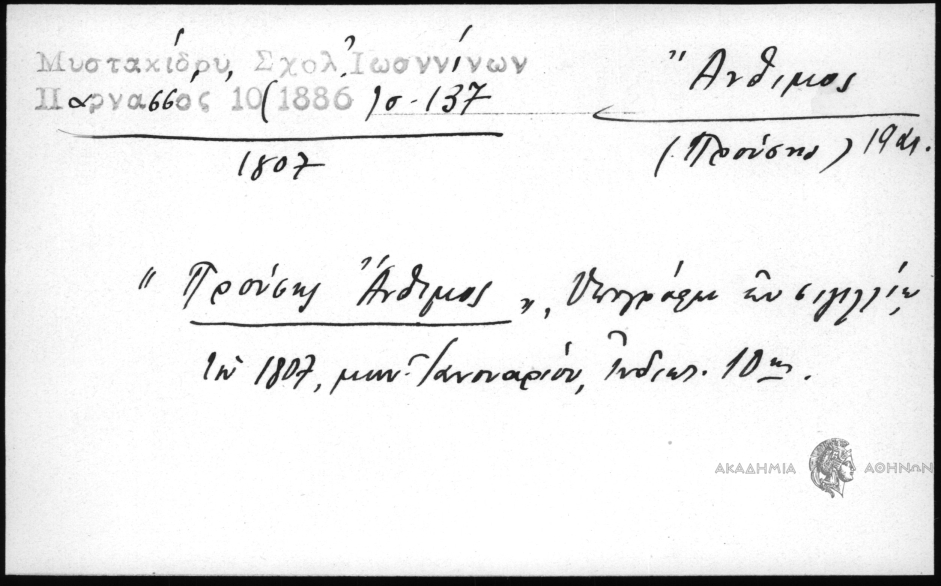 Μυστακίδου, Σχολ. Ἰωαννίνων
Παρνασσος 10 (1886) σ. 137
1807
Ἄνθιμος
(Προύσης) 19 αι.
"Προύσης Ἄνθιμος", Ὑπογράφει ἐν σιγιλλίῳ
τῷ 1807, μην. Ἰανουαρίου, Ἰνδικτ. 10ης.
ΑΚΑΔΗΜΙΑ ΑΘΗΝΩΝ